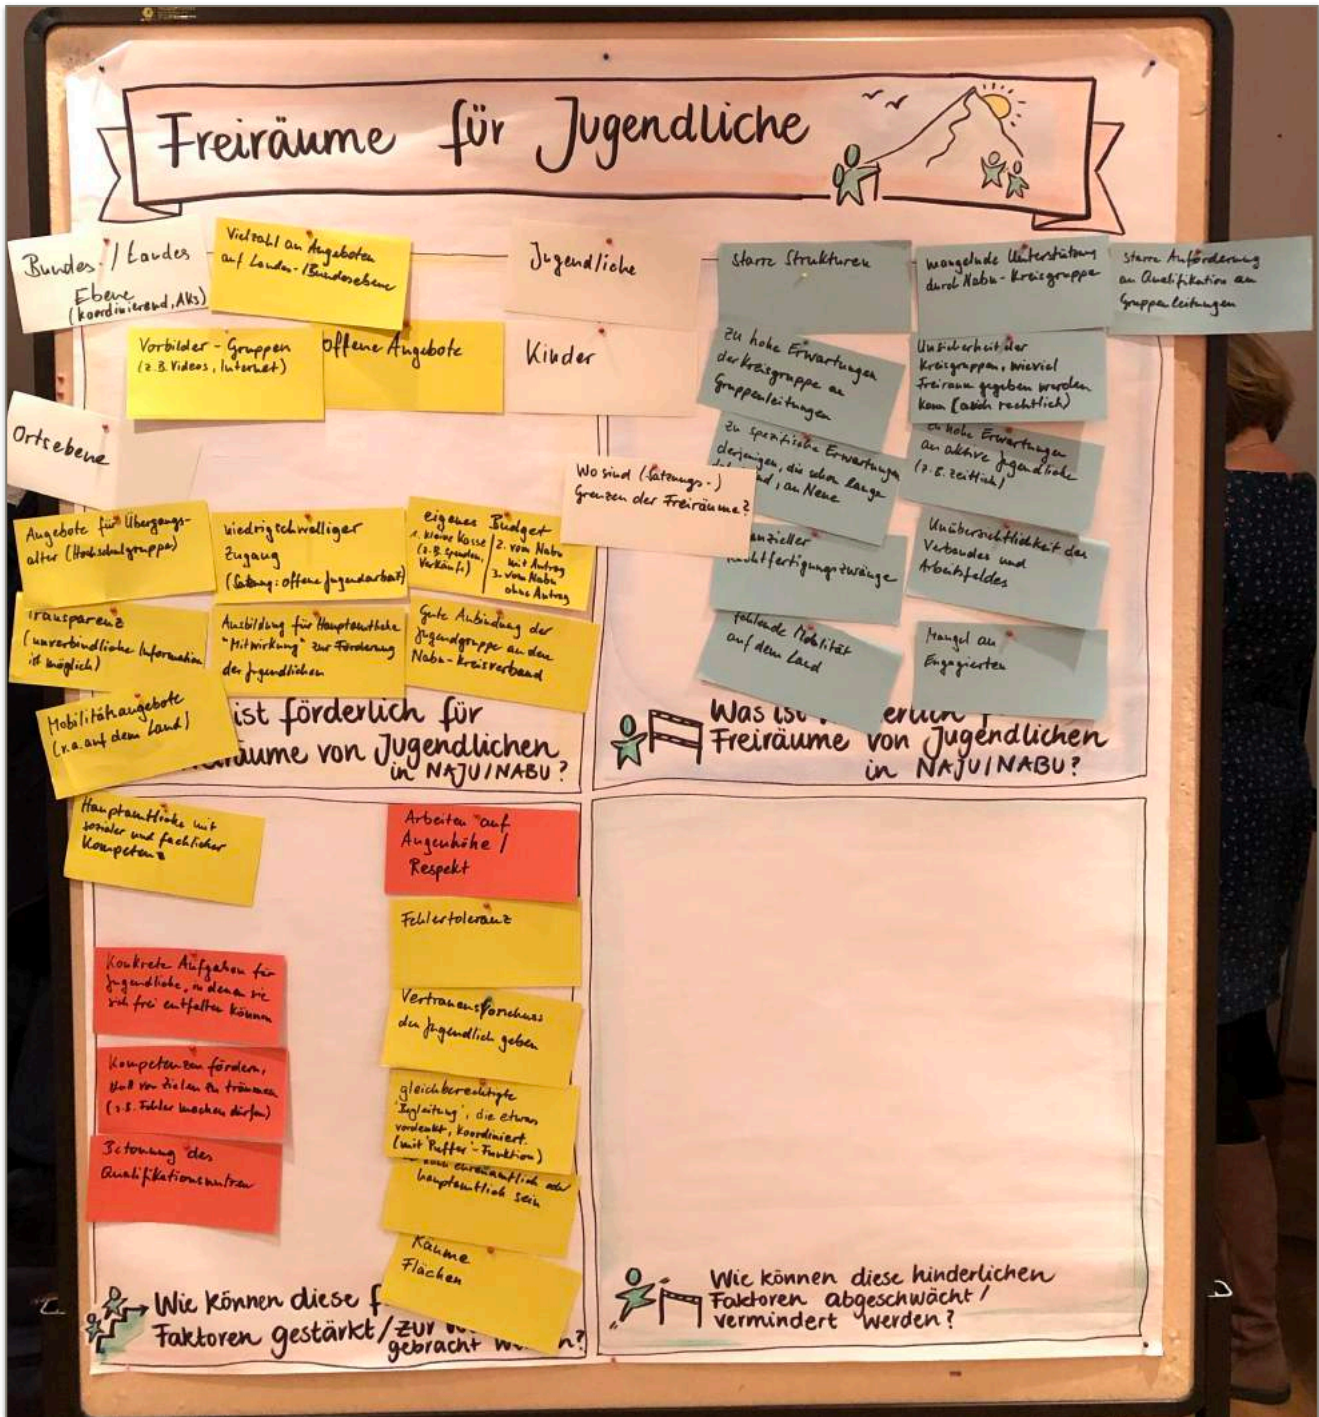 Freiräume für Jugendliche
Bundes-/Landes
Ebene
(koordinierend, AKs)
Vielzahl an Angeboten
auf Landes-/Bundesebene
Vorbilder-Gruppen
(z.B. Videos, Internet)
offene Angebote
Jugendliche
Kinder
Ortsebene
Angebote für Übergangs-
alter (Hochschulgruppen)
niedrigschwelliger
Zugang
(Satzung: offene Jugendarbeit)
eigenes Budget
1. kleine Kasse
(z.B. Spenden,
Verkäufe)
2. vom Nabu
mit Antrag
3. vom Nabu
ohne Antrag
Transparenz
(unverbindliche Information
ist möglich)
Ausbildung für Hauptamtliche
"Mitwirkung" zur Förderung
der Jugendlichen
Gute Anbindung der
Jugendgruppe an den
Nabu-Kreisverband
Mobilitätsangebote
(v.a. auf dem Land)
ist förderlich für
räume von Jugendlichen
in NAJU/NABU?
starre Strukturen
mangelnde Unterstützung
durch Nabu-Kreisgruppe
starre Anforderung
an Qualifikation an
Gruppenleitungen
zu hohe Erwartungen
der Kreisgruppe an
Gruppenleitungen
Unsicherheit der
Kreisgruppen, wieviel
Freiraum gegeben werden
kann (auch rechtlich)
zu spezifische Erwartungen
derjenigen, die schon lange
, an Neue
zu hohe Erwartungen
an aktive Jugendliche
(z.B. zeitlich)
Wo sind (Satzungs-)
Grenzen der Freiräume?
anzieller
chtfertigungszwänge
Unübersichtlichkeit des
Verbandes und
Arbeitsfeldes
fehlende Mobilität
auf dem Land
Mangel an
Engagierten
Was ist erlich
Freiräume von Jugendlichen
in NAJU/NABU?
Hauptamtliche mit
sozialer und fachlicher
Kompetenz
Arbeiten auf
Augenhöhe /
Respekt
Fehlertoleranz
Konkrete Aufgaben für
Jugendliche, in denen sie
sich frei entfalten können
Vertrauensvorschuss
den Jugendlich geben
Kompetenzen fördern,
von Zielen zu träumen
(z.B. Fehler machen dürfen)
gleichberechtigte
"Begleitung", die etwas
vordenkt, koordiniert.
(mit "Puffer"-Funktion)
kann ehrenamtlich oder
hauptamtlich sein
Betonung des
Qualifikationsnutzen
Räume
Flächen
Wie können diese f
Faktoren gestärkt/zur
gebracht w n?
Wie können diese hinderlichen
Faktoren abgeschwächt/
vermindert werden?